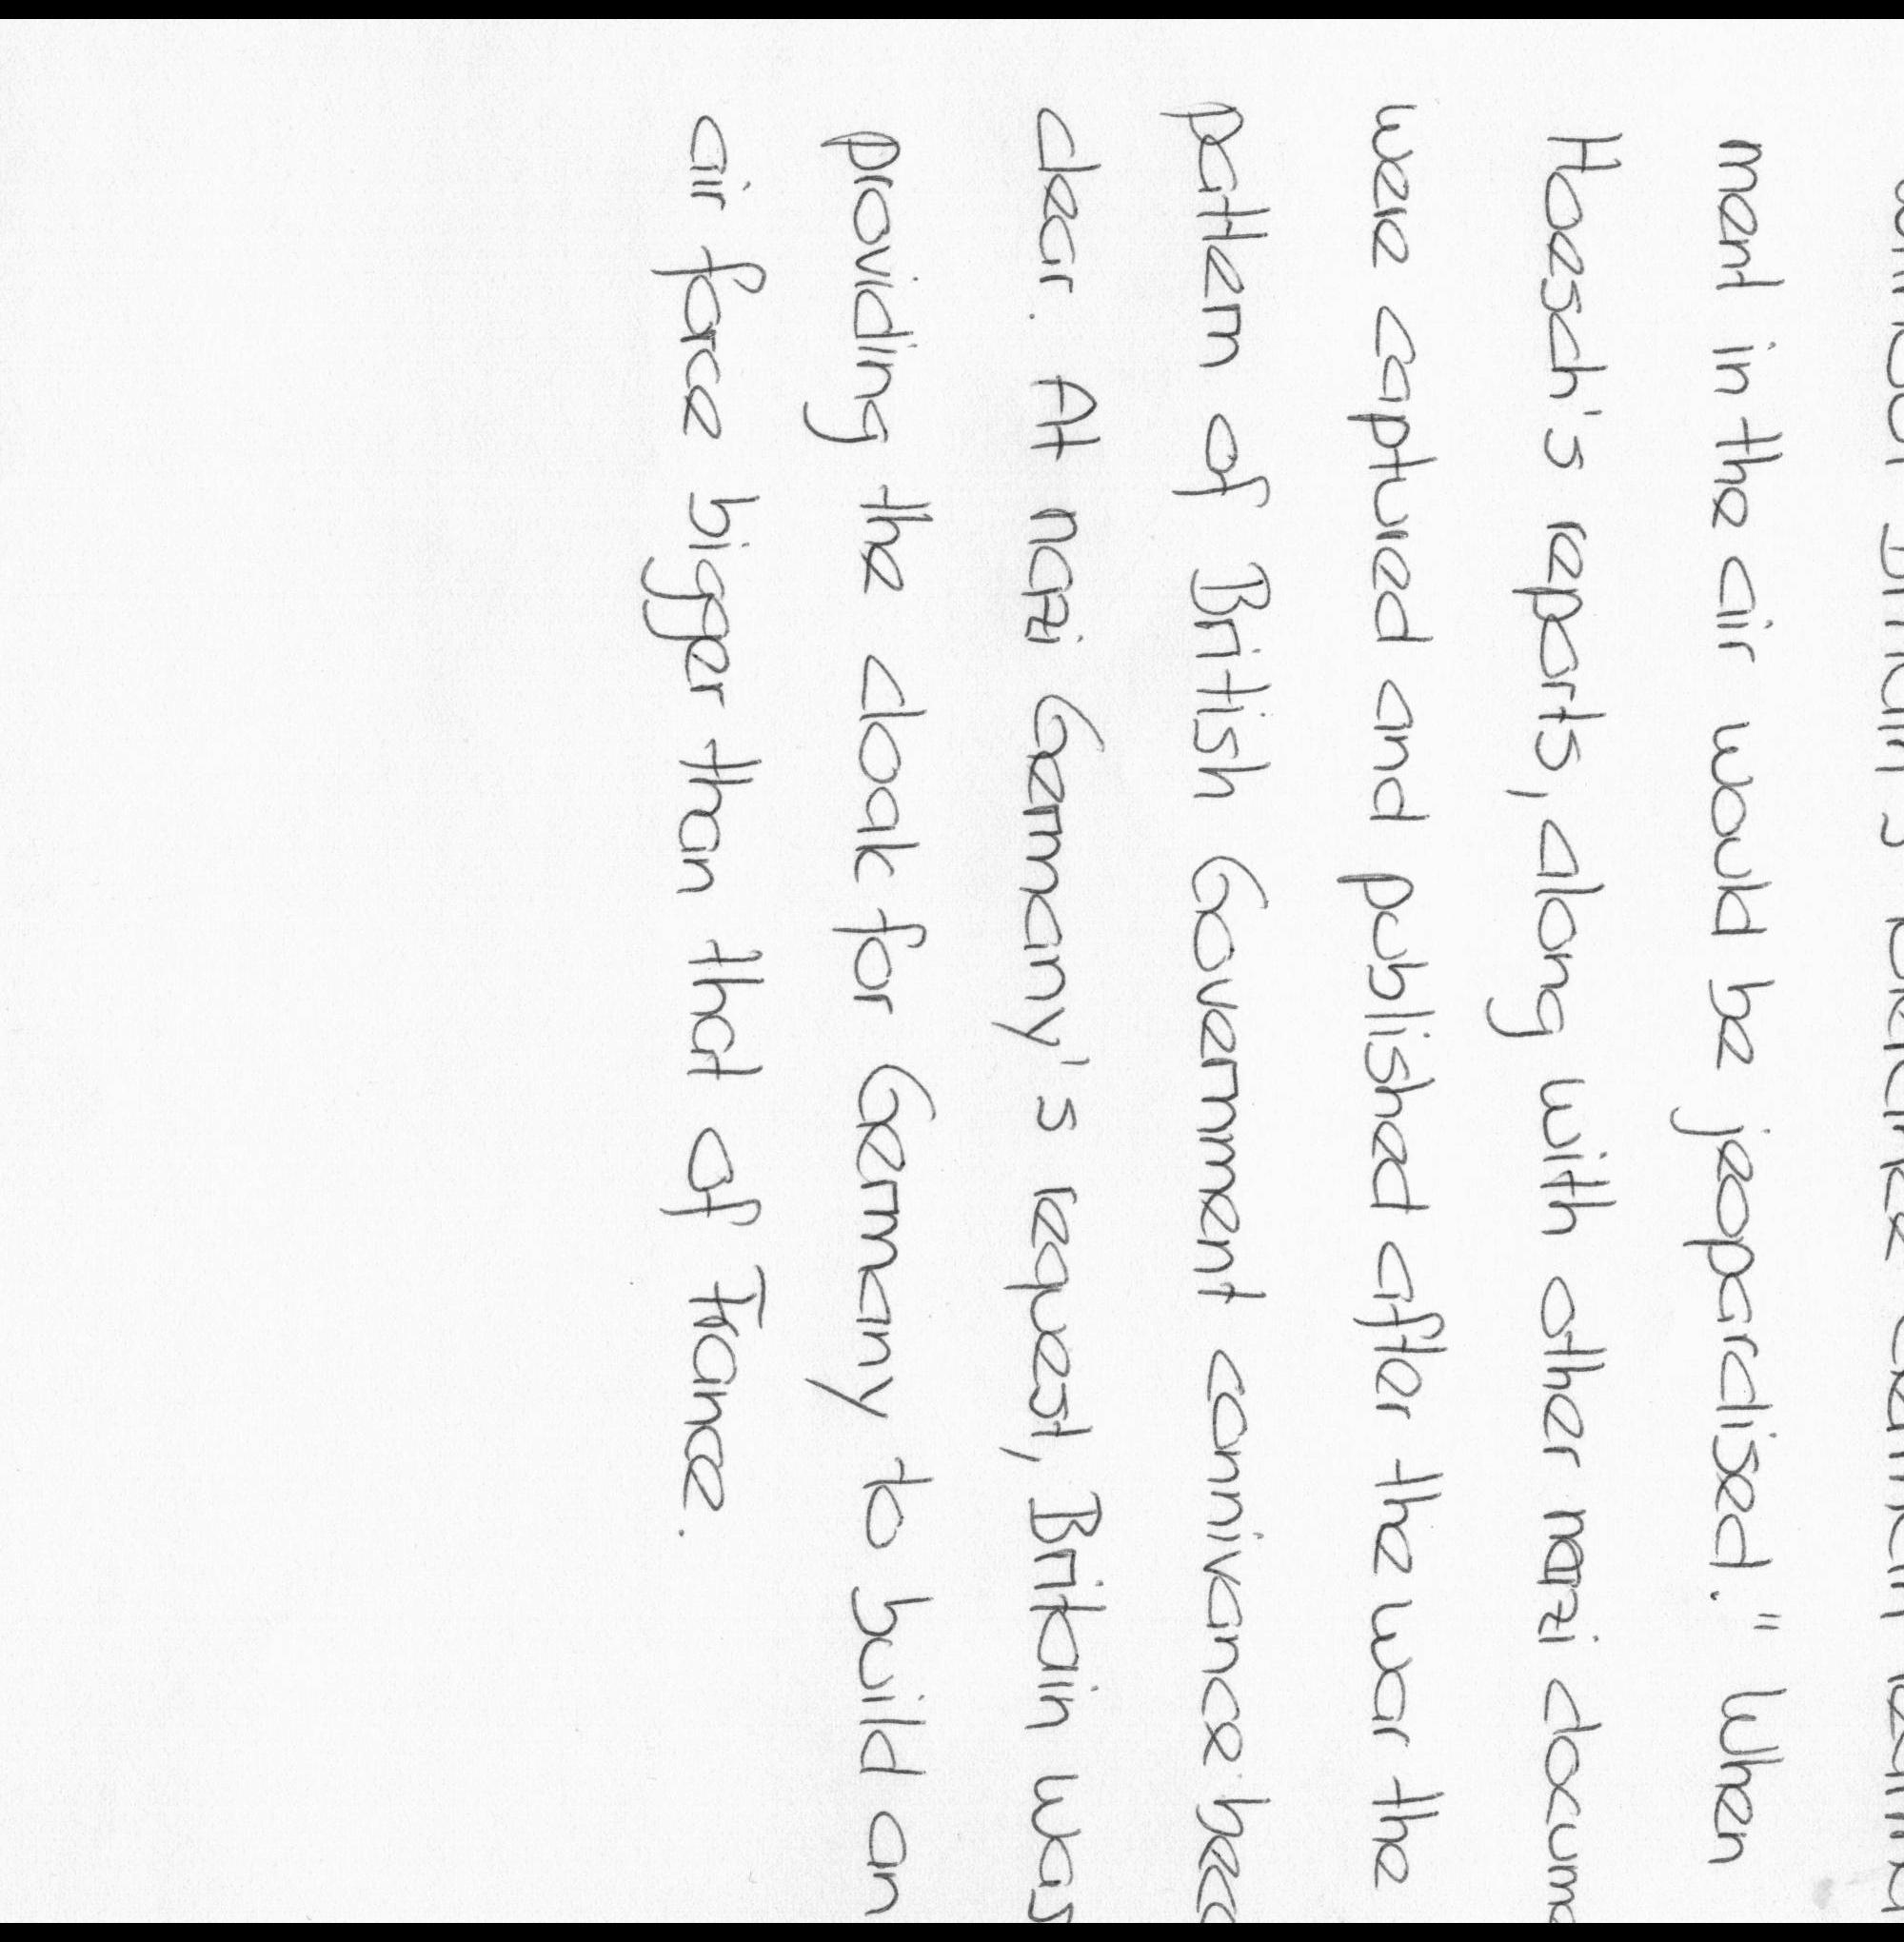 Britain's
ment in the air would be jeopardised." When
Hoesch's reports, along with other nazi
were captured and published after the war the
pattern of British Government connivance
clear. At nazi Germany's request, Britain was
providing the cloak for Germany to build an
air force bigger than that of France.